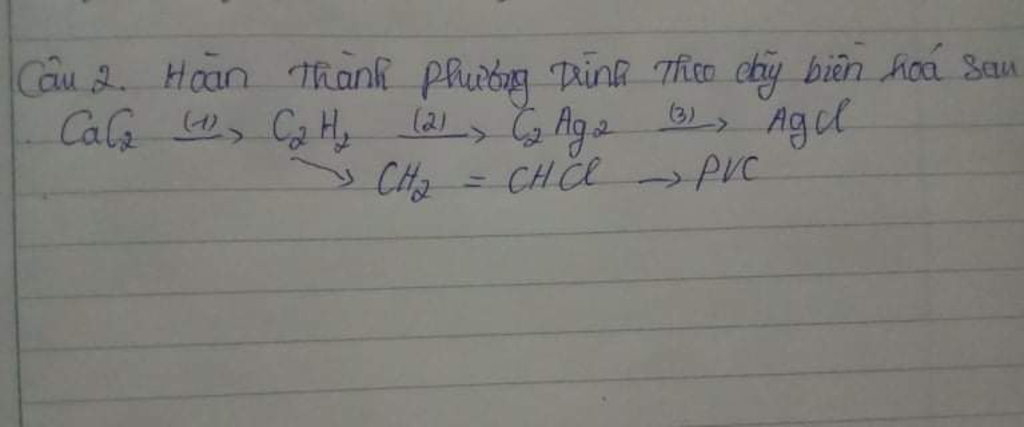 Câu 2. Hoàn Thành phương trình Theo dãy biến hoá sau
CaC2 (1)→ C2H2 (2)→ C2Ag2 (3)→ AgCl
→ CH2 = CHCl → PVC